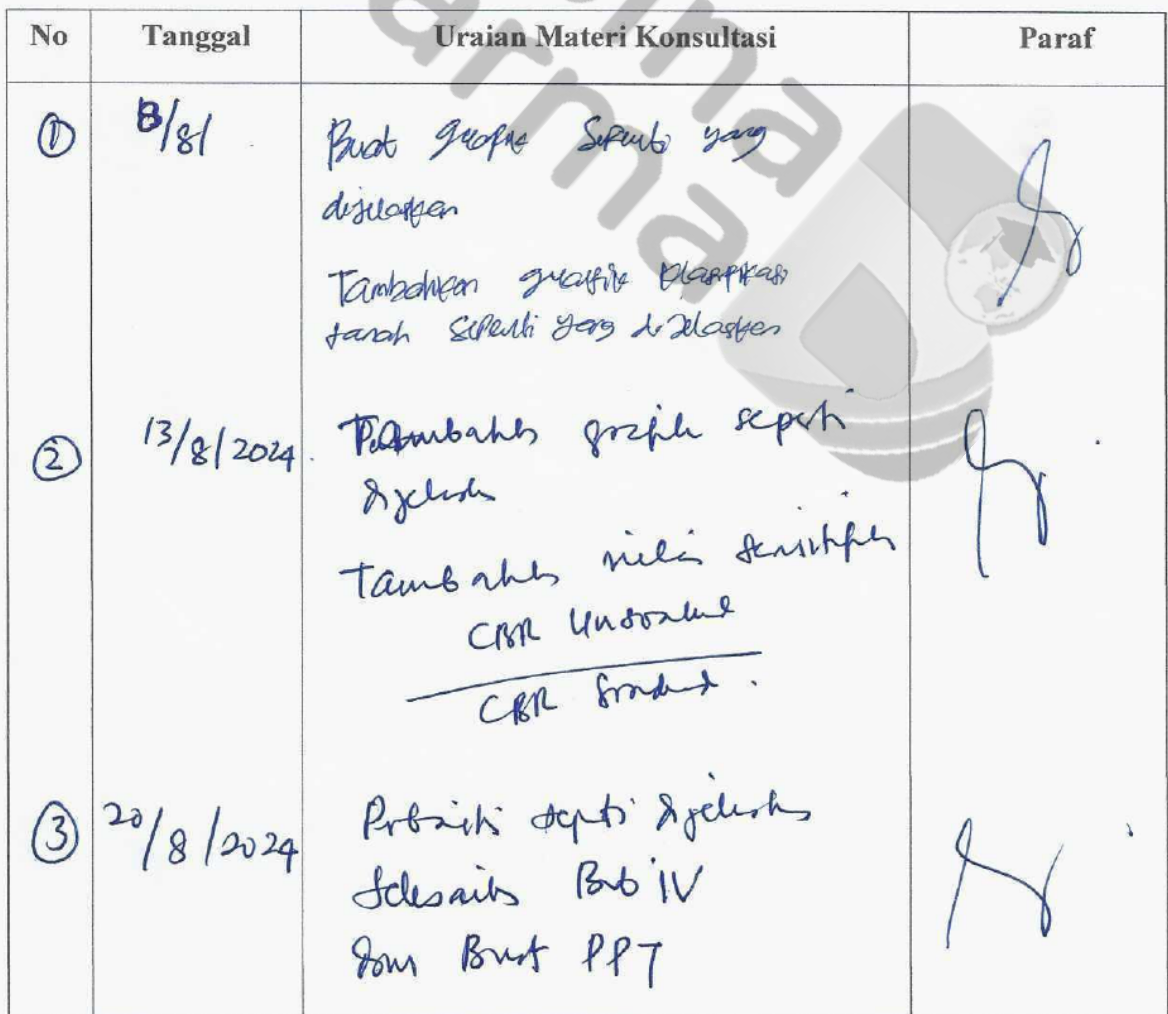 No Tanggal Uraian Materi Konsultasi Paraf
① 8/8/ Buat grafik seperti yang
dijelaskan
Tambahkan grafik klasifikasi
tanah seperti yang dijelaskan
② 13/8/2024. Tambahkan grafik seperti
dijelaskan
Tambahkan nilai sensitifitas
CBR Unsoaked
CBR Soaked.
③ 20/8/2024 Perbaiki seperti dijelaskan
Selesaikan Bab IV
dan Buat PPT